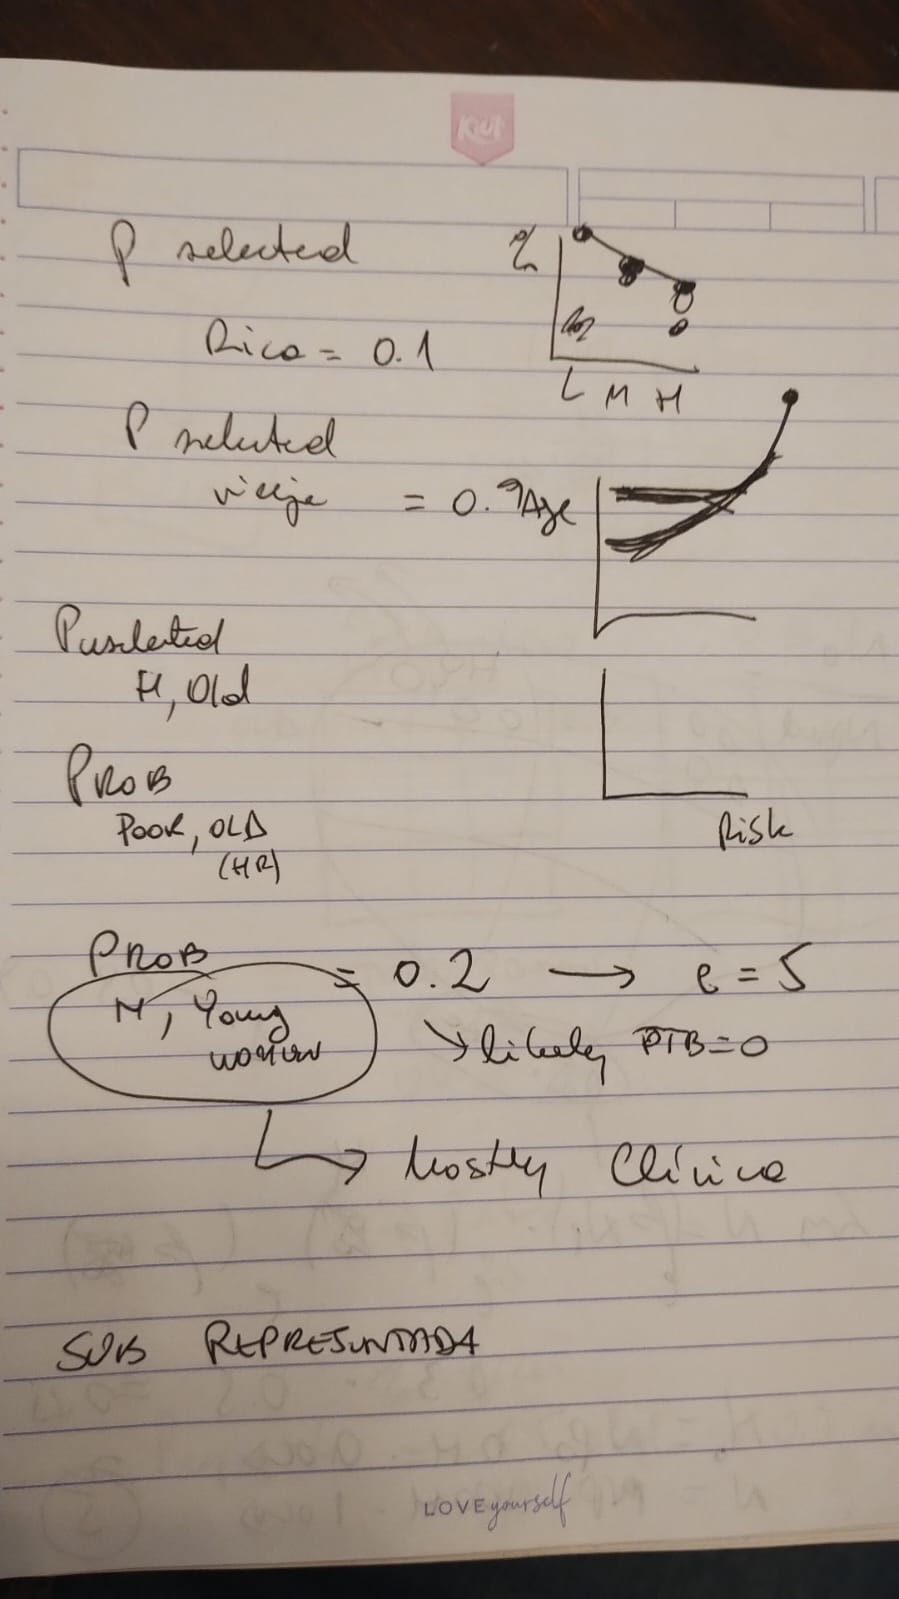 Kiut
P selected
%
Rica = 0.1
L M H
P selected
vieja = 0.9
Age
P selected
H, Old
PROB
POOR, OLD
(HR)
Risk
PROB
= 0.2 → e = 5
M, Young
women
↘ likely PTB=0
↳ Mostly Clínica
SUB REPRESENTADA
LOVE yourself